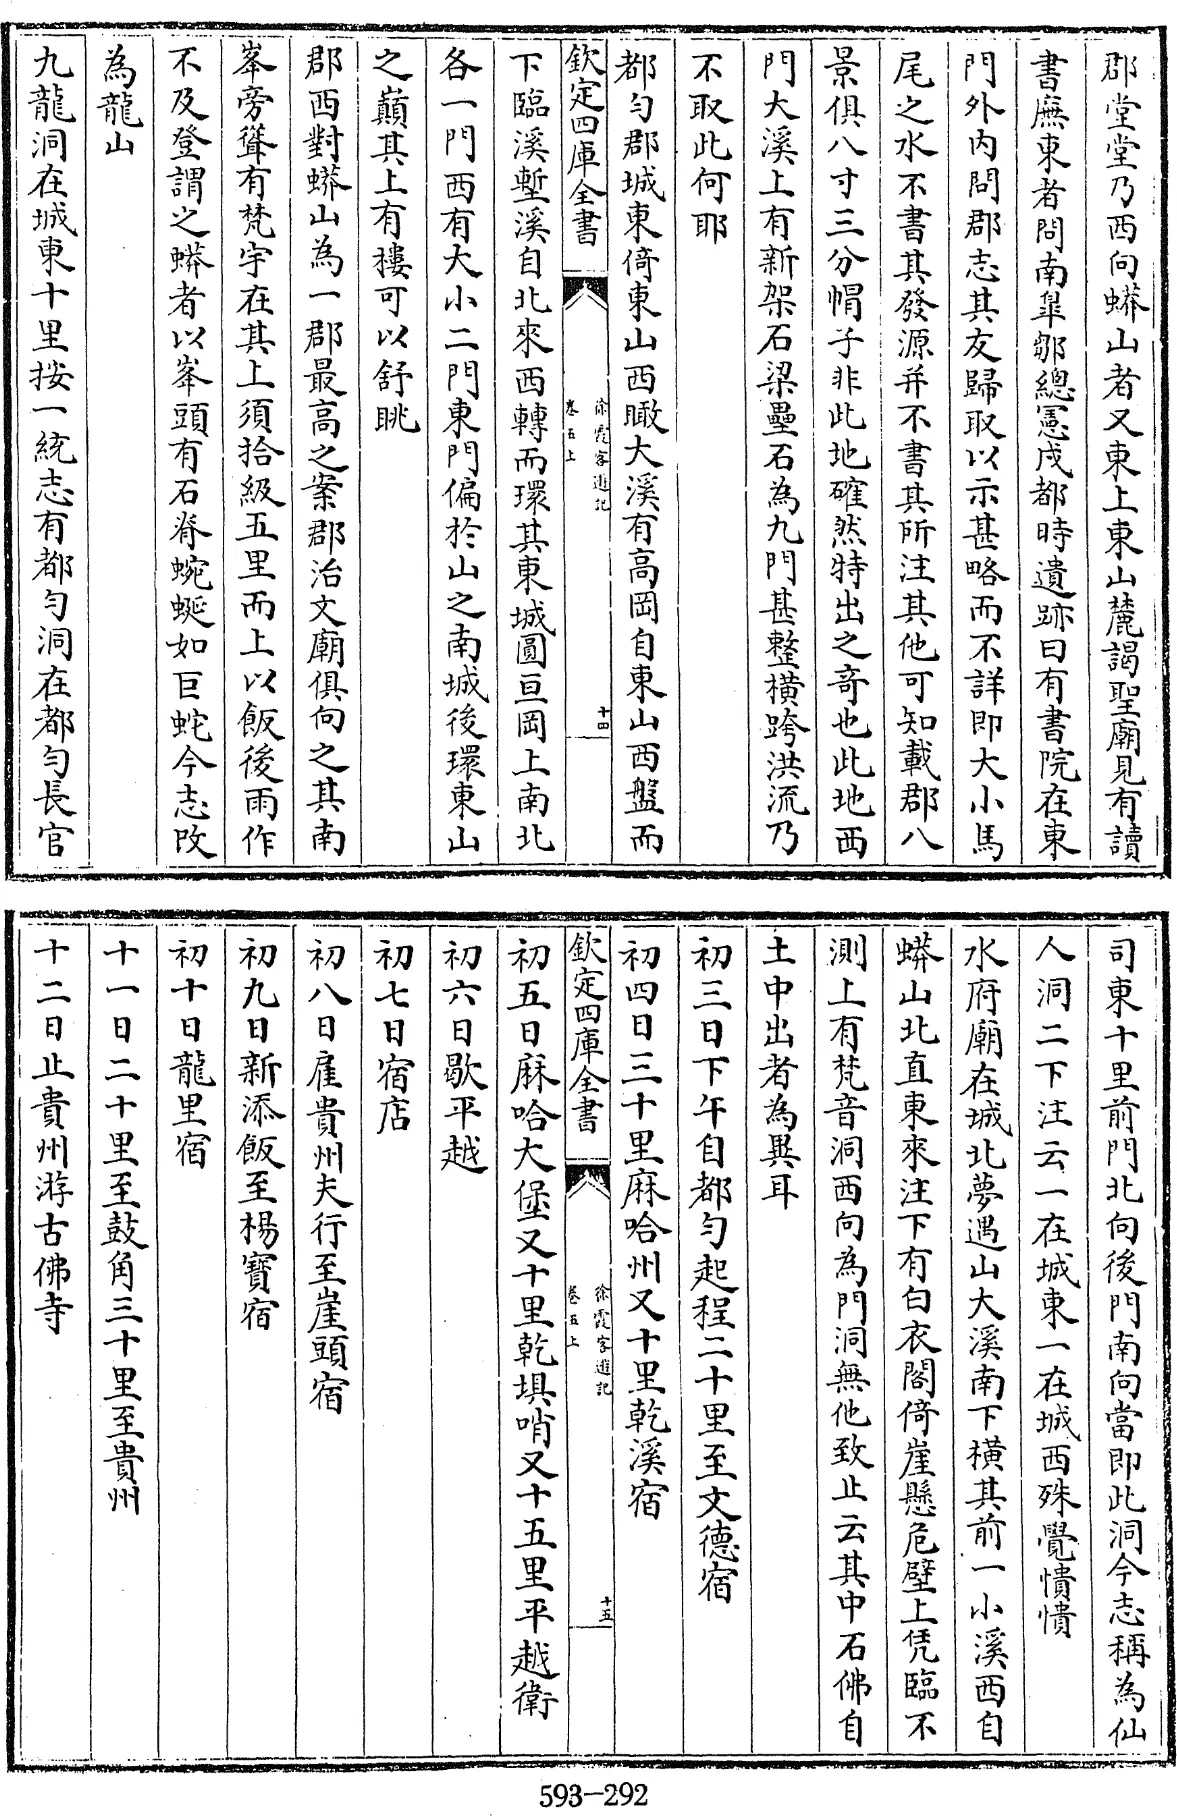 郡堂堂乃西向蟒山者又東上東山麓謁聖廟見有讀
書廡東者問南臯鄒總憲戍都時遺跡曰有書院在東
門外内問郡志其友歸取以示甚略而不詳即大小馬
尾之水不書其發源并不書其所注其他可知載郡八
景俱八寸三分帽子非此地確然特出之竒也此地西
門大溪上有新架石梁壘石為九門甚整横跨洪流乃
不取此何耶
都匀郡城東倚東山西瞰大溪有高岡自東山西盤而
欽定四庫全書
徐霞客遊記
卷五上
十四
下臨溪塹溪自北來西轉而環其東城圓亘岡上南北
各一門西有大小二門東門偏於山之南城後環東山
之巔其上有樓可以舒眺
郡西對蟒山為一郡最高之案郡治文廟俱向之其南
峯旁聳有梵宇在其上須拾級五里而上以飯後雨作
不及登謂之蟒者以峯頭有石脊蜿蜒如巨蛇今志改
為龍山
九龍洞在城東十里按一統志有都匀洞在都匀長官
司東十里前門北向後門南向當即此洞今志稱為仙
人洞二下注云一在城東一在城西殊覺憒憒
水府廟在城北夢遇山大溪南下横其前一小溪西自
蟒山北直東來注下有白衣閣倚崖懸危壁上凭臨不
測上有梵音洞西向為門洞無他致止云其中石佛自
土中出者為異耳
初三日下午自都匀起程二十里至文德宿
初四日三十里麻哈州又十里乾溪宿
欽定四庫全書
徐霞客遊記
卷五上
十五
初五日麻哈大堡又十里乾垻哨又十五里平越衛
初六日歇平越
初七日宿店
初八日雇貴州夫行至崖頭宿
初九日新添飯至楊寶宿
初十日龍里宿
十一日二十里至鼓角三十里至貴州
十二日止貴州游古佛寺
593-292